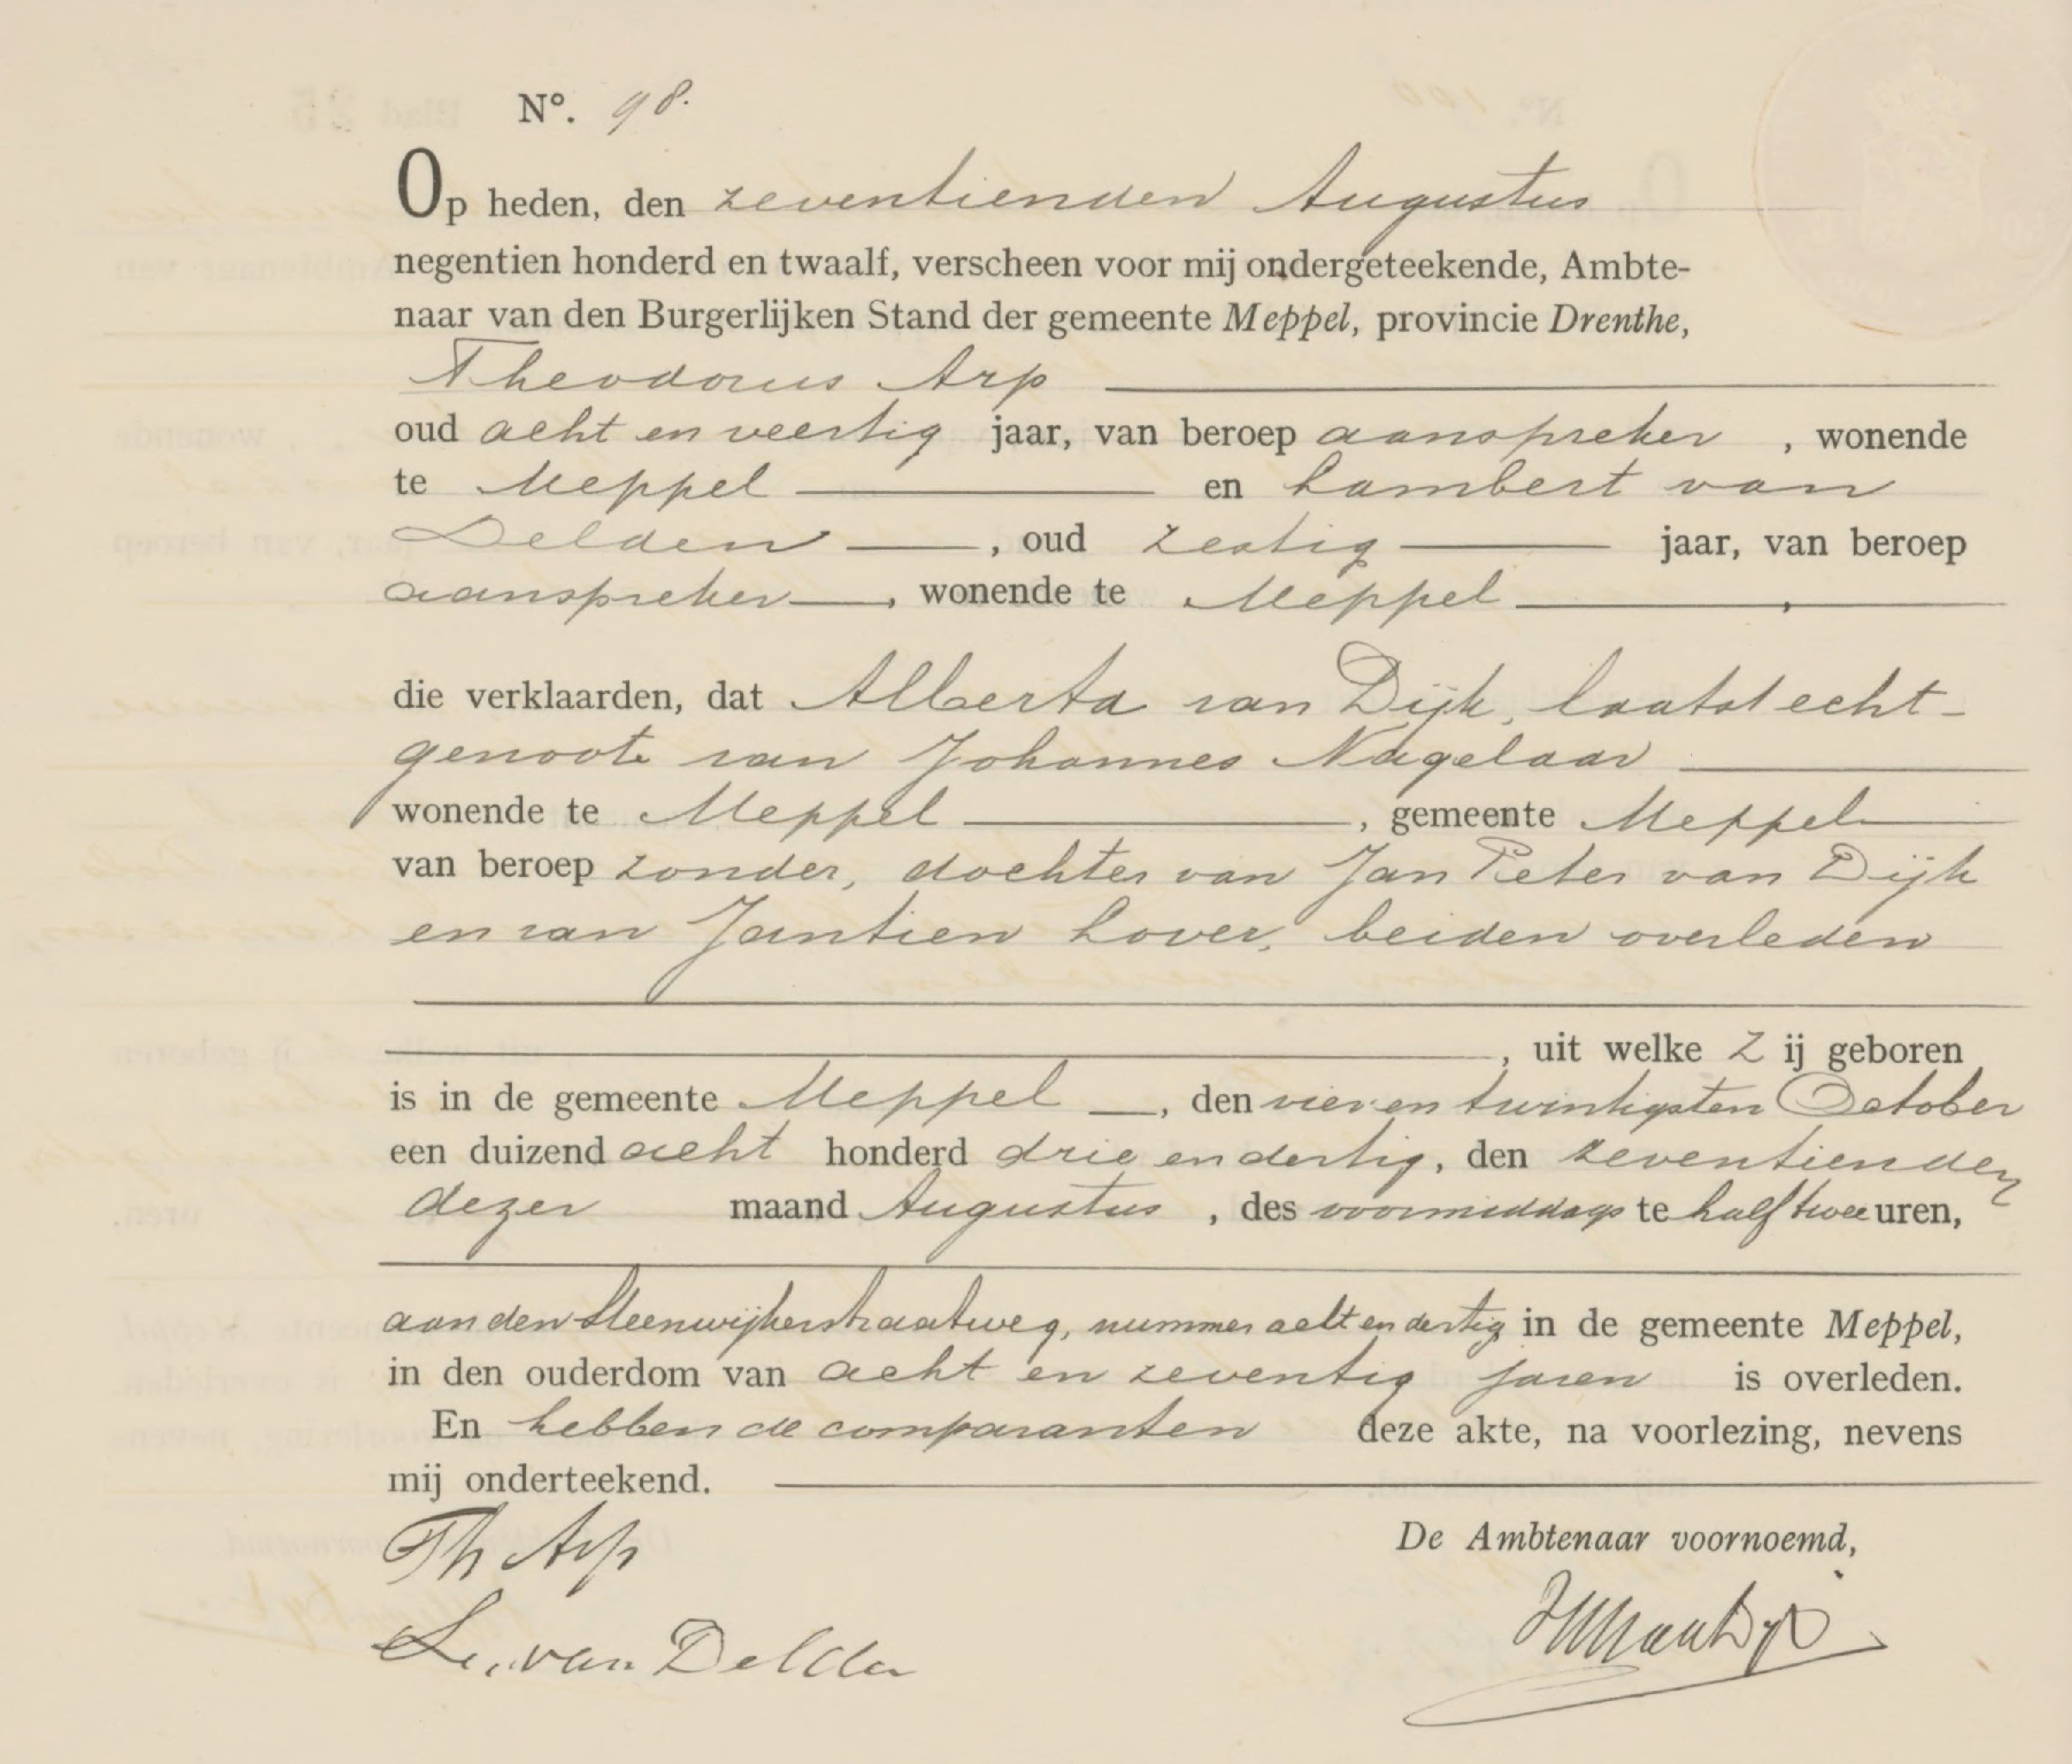 Nº. 98.
Op heden, den zeventienden Augustus
negentien honderd en twaalf, verscheen voor mij ondergeteekende, Ambte-
naar van den Burgerlijken Stand der gemeente Meppel, provincie Drenthe,
Theodorus Arp
oud acht en veertig jaar, van beroep aanspreker, wonende
te Meppel en Lambert van
Delden, oud zestig jaar, van beroep
aanspreker, wonende te Meppel,
die verklaarden, dat Alberta van Dijk, laatst echt-
genoote van Johannes Nagelaar
wonende te Meppel, gemeente Meppel
van beroep zonder, dochter van Jan Peter van Dijk
en van Jantien Lover, beiden overleden
, uit welke zij geboren
is in de gemeente Meppel, den vier en twintigsten October
een duizend acht honderd drie en dertig, den zeventienden
dezer maand Augustus, des voormiddags te half twee uren,
aan den Steenwijkerstraatweg, nummer acht en dertig in de gemeente Meppel,
in den ouderdom van acht en zeventig jaren is overleden.
En hebben de comparanten deze akte, na voorlezing, nevens
mij onderteekend.
Th Arp
De Ambtenaar voornoemd,
L. van Delden